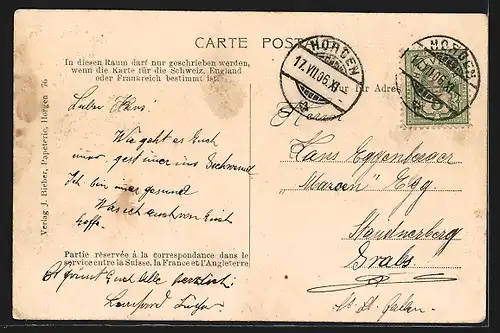 CARTE POST
In diesen Raum darf nur geschrieben werden,
wenn die Karte für die Schweiz, England
oder Frankreich bestimmt ist.
Nur für Adres
HORGEN
17.VII.06.XI
HORGEN
VII.06.XI
Lieber Hans!
Wie geht es Euch
immer, gest
Ich bin immer gesund
Was ich auch von Euch
hoffe.
Partie réservée à la correspondance dans le
service entre la Suisse, la France et l'Angleterre.
Es grüsst Euch Alle herzlich.
Herrn
Hans Eggenberger
"Marcen" Egg
Staudnerberg
Grabs
Kt. St. Gallen
Verlag J. Bieber, Papeterie, Horgen 76